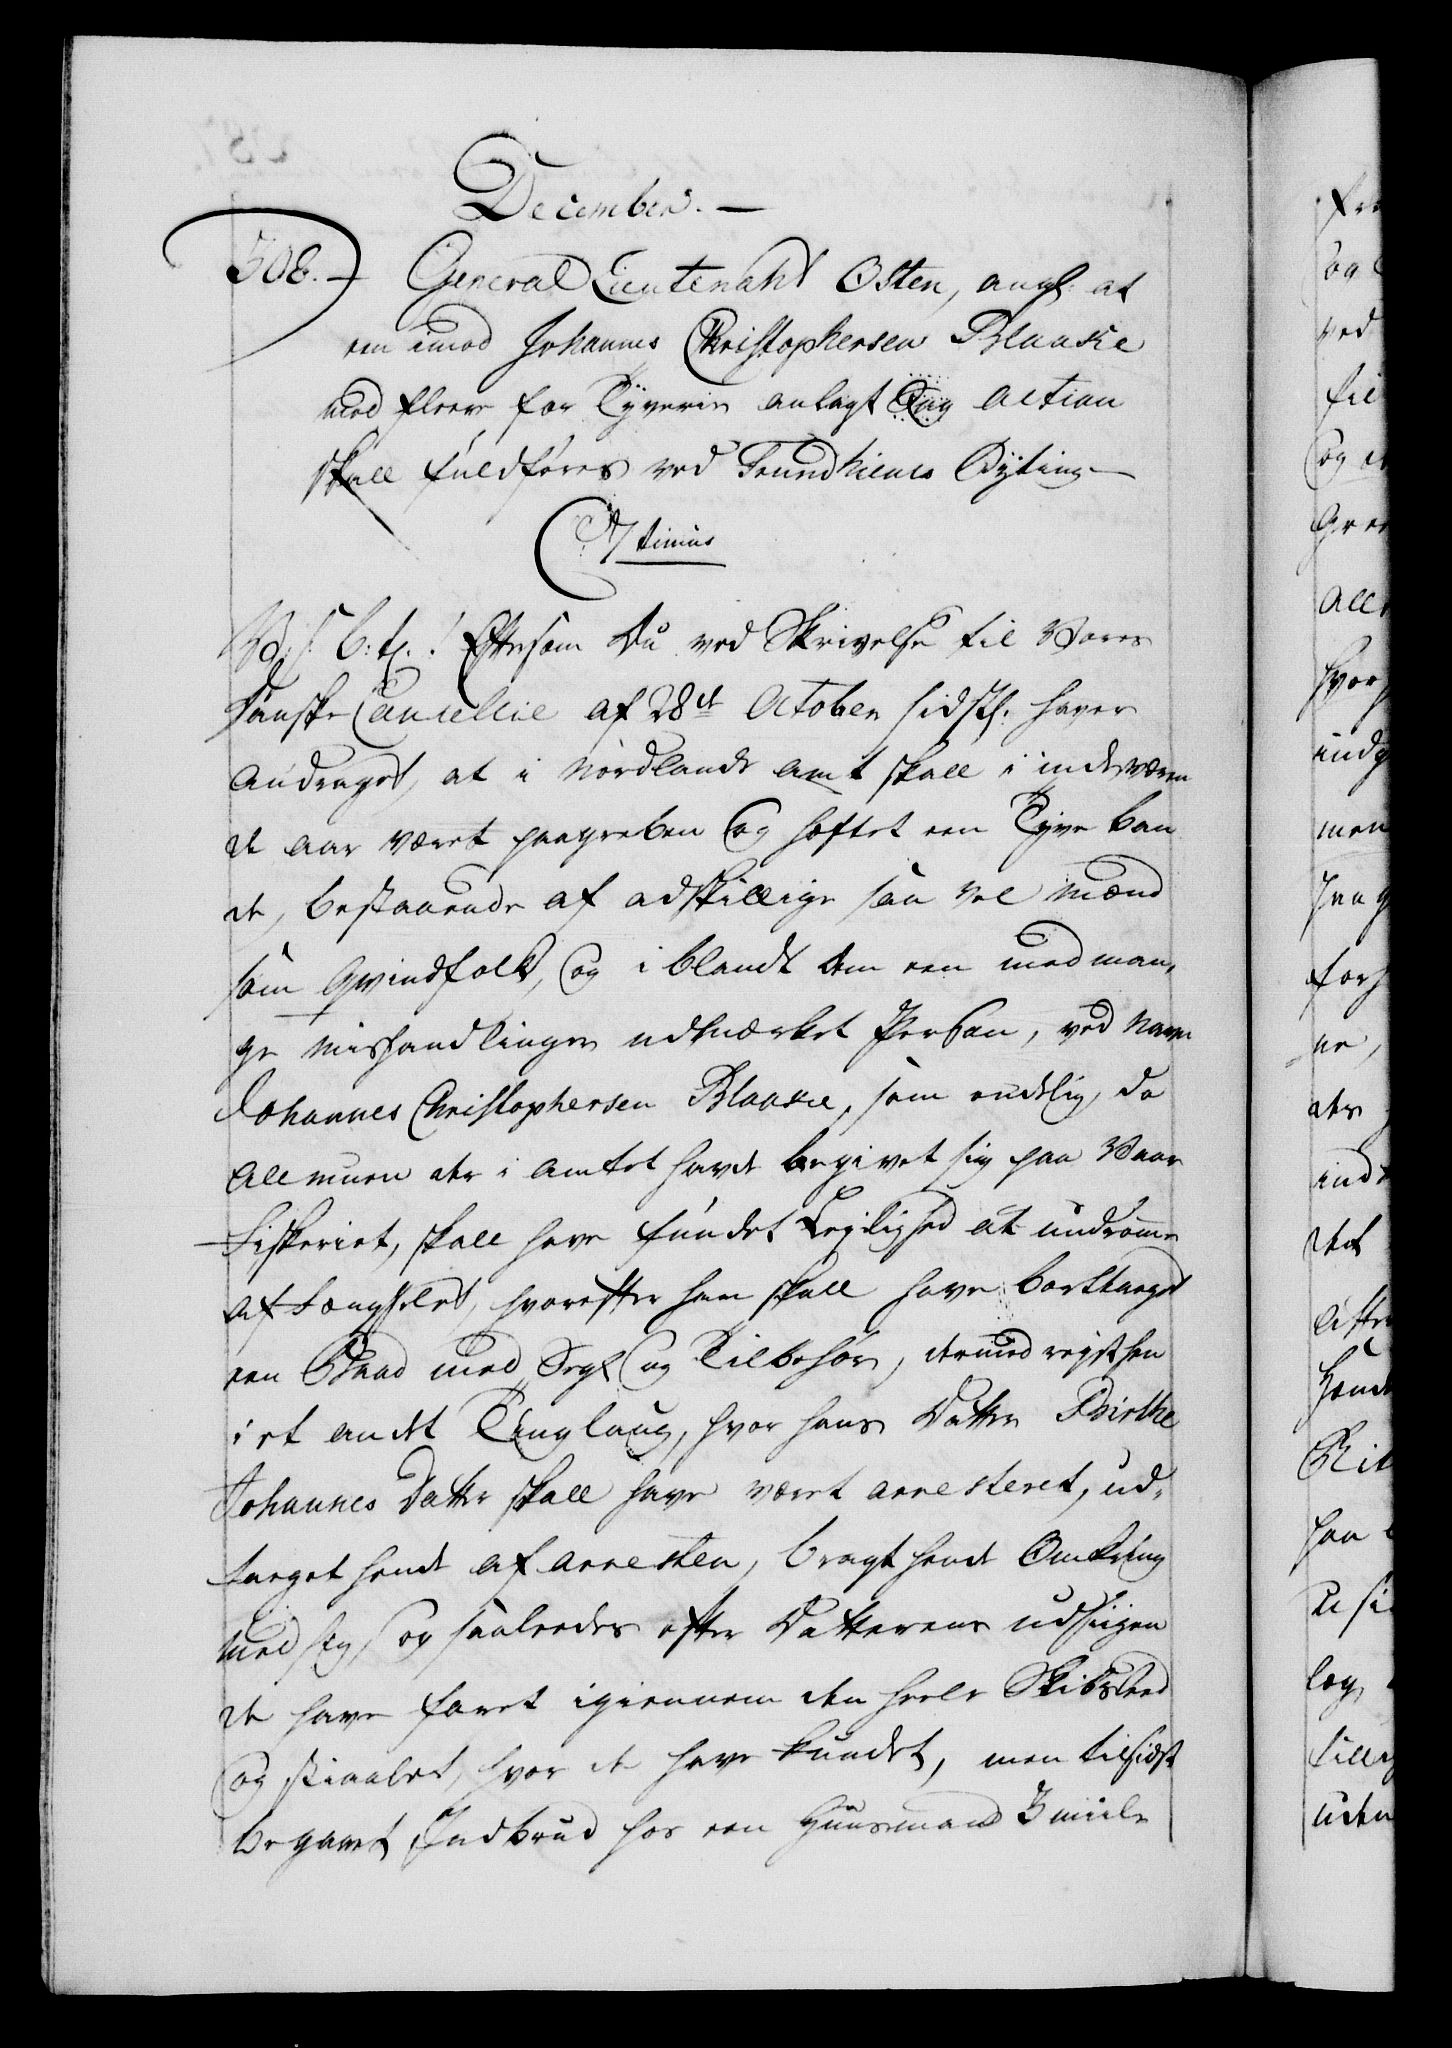 December.
508. General Lieutenant Osten, ang: at
een imod Johannes Christophersen Blaakie
med fleere for Tyverie anlagt Sag Action
skall fuldføres ved Trundhiems Byting
C 7timus
V: S: B: t: ! Eftersom Du ved Skrivelse til Vores
danske Cancellie af 28de October sidstl: haver
andraget, at i Nordlands amt skall i indeværen
de aar været paagreben og hæftet een Tyve ban
de, bestaaende af adskillige saa vel Mænd
som Qvindfolk, og iblandt dem een med man,
ge Mishandlinger udmærket Person, ved Navn
Johannes Christophersen Blaakie, som endelig, da
Allmuen der i amtet havde begivet sig paa Vaar
Fiskeriet, skall have fundet Leylighed at undrømme
af Fængselet, hvorefter han skall have borttaget
een Baad med Segl og Tilbehør, dermed reyst hen
i et andet Tinglaug, hvor hans Datter Birthe
Johannes Datter skall have været arresteret, ud,
taget hende af arresten, bragt hende Omkring
med sig, og saaledes efter Datterens udsigen
de have faret igiennem den heele Skibsleed
og stiaalet, hvor de have kundet, men tilsidst
begaaet Indbrud hos een Huusmand 3 miile